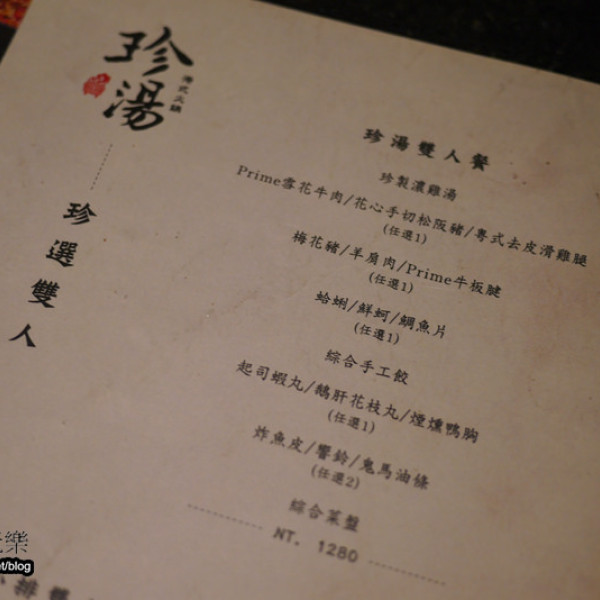 珍湯
港式火鍋
珍選雙人
珍湯雙人餐
珍製濃雞湯
Prime雪花牛肉/花心手切松阪豬/粵式去皮滑雞腿
(任選1)
梅花豬/羊肩肉/Prime牛板腱
(任選1)
蛤蜊/鮮蚵/鯛魚片
(任選1)
綜合手工餃
起司蝦丸/鵝肝花枝丸/煙燻鴨胸
(任選1)
炸魚皮/響鈴/鬼馬油條
(任選2)
綜合菜盤
NT. 1280
樂
et/blog